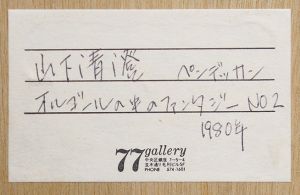 山下清澄 ペンデッサン
オルゴールの中のファンタジー NO2
1980年
77 gallery
中央区銀座 7-5-4
並木通り毛利ビル5F
PHONE 574-7651